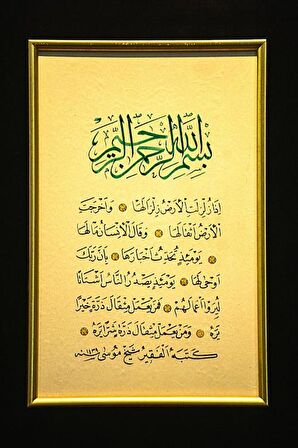 بسم الله الرحمن الرحيم
إِذَا زُلْزِلَتِ الْأَرْضُ زِلْزَالَهَا ۝ وَأَخْرَجَتِ
الْأَرْضُ أَثْقَالَهَا ۝ وَقَالَ الْإِنْسَانُ مَا لَهَا
يَوْمَئِذٍ تُحَدِّثُ أَخْبَارَهَا ۝ بِأَنَّ رَبَّكَ
أَوْحَى لَهَا ۝ يَوْمَئِذٍ يَصْدُرُ النَّاسُ أَشْتَاتًا
لِيُرَوْا أَعْمَالَهُمْ ۝ فَمَنْ يَعْمَلْ مِثْقَالَ ذَرَّةٍ خَيْرًا
يَرَهُ ۝ وَمَنْ يَعْمَلْ مِثْقَالَ ذَرَّةٍ شَرًّا يَرَهُ ۝
كتبه الفقير شيخ موسى